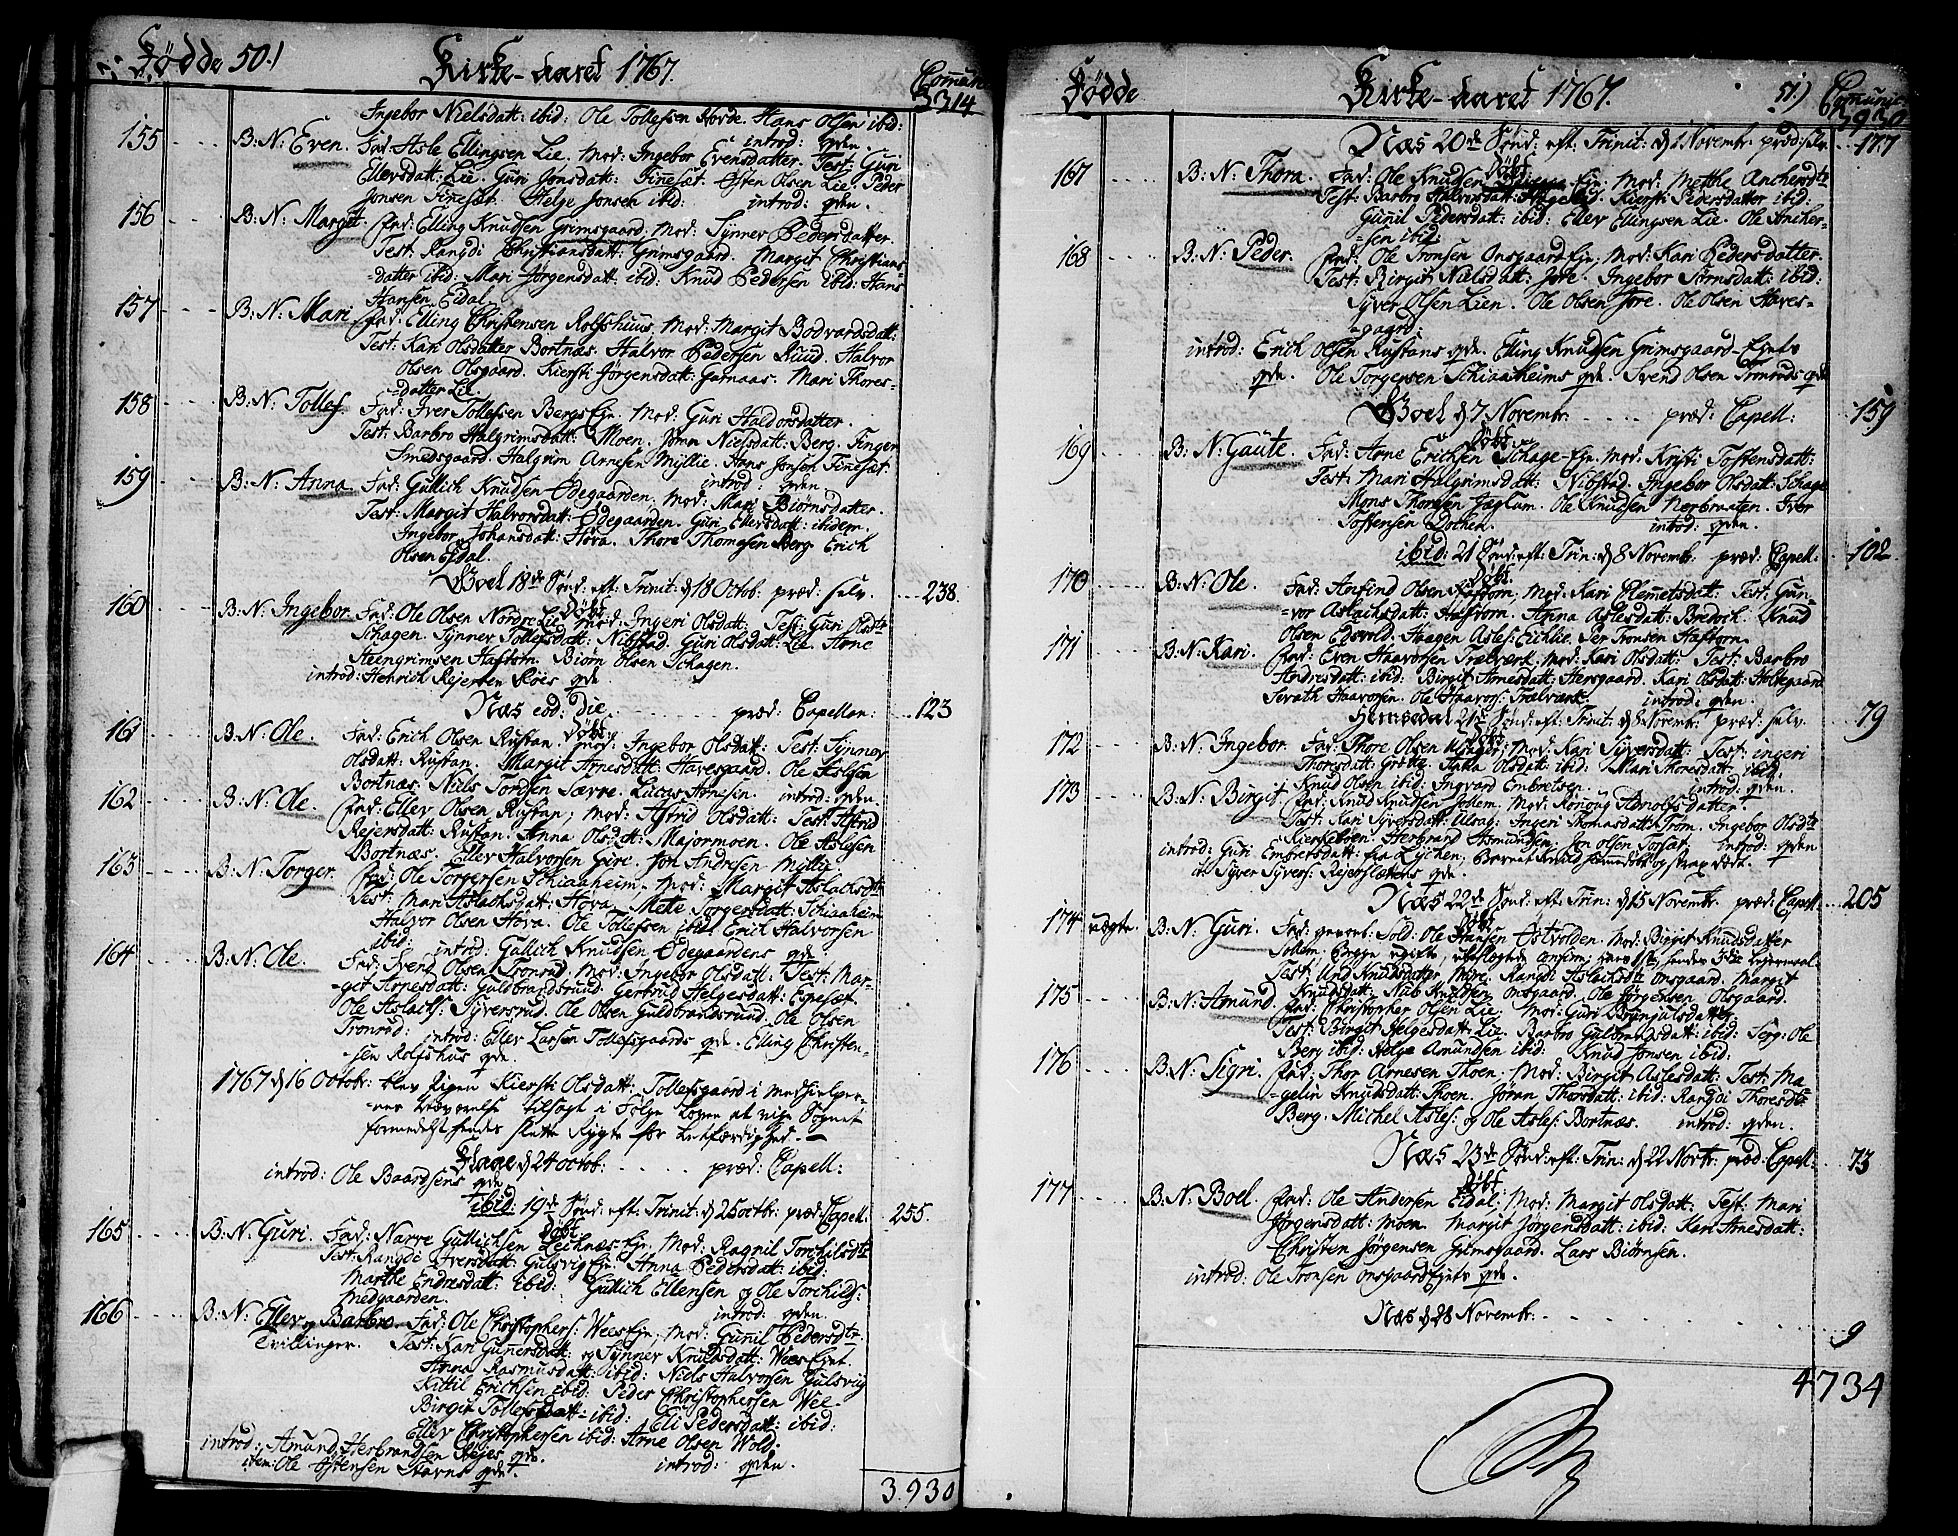 Fødde 50.) Kirke-aaret 1767. Comunic:
3314
Ingebor Nielsdatt: ibid: Ole Tollefsen Horde. Hans Olsen ibid:
introd: qvden.
155 B: N: Even. Fad: Asle Ellingsen Lie. Mod: Ingebor Evensdatter. Test: Guri
Ellersdatt: Lie. Guri Jonsdatt: Finesæt. Østen Olsen Lie. Peder
Jonsen Finesæt. Helge Jonsen ibid: introd: qvden.
156 B: N: Margit. Fad: Elling Knudsen Grimsgaard. Mod: Synnev Pedersdatter.
Test: Rangdi Christiansdatt: Grimsgaard. Margit Christians-
-datter ibid: Mari Jørgensdatt: ibid: Knud Pedersen ibid: Hans
Hansen Eidal.
157 B: N: Mari. Fad: Elling Christensen Rolfshuus. Mod: Margit Bodvardsdatt:
Test: Kari Olsdatter Bortnæs. Halvor Pedersen Ruud. Halvor
Olsen Olsgaard. Kiersti Jørgensdatt: Garnaas. Mari Thores-
-datter Lie.
158 B: N: Tollef. Fad: Iver Tollefsen Bergs Ejn. Mod: Guri Haldorsdatter.
Test: Barbro Halgrimsdatt: Moen. Jøran Nielsdatt: Berg. Finger
Smedsgaard. Halgrim Arnesen Myllie. Hans Jonsen Finesæt.
introd: qvden.
159 B: N: Anna. Fad: Gullich Knudsen Ødegaarden. Mod: Mari Biørnsdatter.
Test: Margit Halvorsdatt: Ødegaarden. Guri Ellersdatt: ibidem.
Ingebor Johansdatt: Hova. Thore Thomesen Berg. Erich
Olsen Eidal.
18de Sønd: eft: Trinit: d 18 Octob: præd: selv. 238.
Døbt
160 B: N: Ingebor. Fad: Ole Olsen Nordre Lie, Mod: Ingeri Olsdatt: Test: Guri Olsdtr
Schagen. Synnev Tollefsdatt: Nibstad. Guri Olsdatt: Lie. Arne
Steengrimsen Haftorn. Biørn Olsen Schagen.
introd: Henrich Rejersen Roies qvde.
Næs eod: die præd: Capellan: 123
Døbt
161 B: N: Ole. Fad: Erich Olsen Rustan. Mod: Ingebor Olsdatt: Test: Synnev
Olsdatt: Rustan. Margit Arnesdatt: Havesgaard. Ole Aslesen
Bortnæs. Niels Tordsen Særre. Lucas Arnesen. introd: qvden.
162 B: N: Ole. Fad: Ellev Olsen Rustan, mod: Astrid Olsdatt: Test: Astrid
Rejersdatt: Rustan. Anna Olsdatt: Majormoen. Ole Aslesen
Bortnæs. Ellev Halvorsen Guri. Jon Andresen Myllie.
163 B: N: Torger. Fad: Ole Torgersen Schiaaheim. Mod: Margit Aslachsdtr
Test: Mari Aslachsdat: Hova. Mete Torgersdatt: Schiaaheim
Halvor Olsen Hova. Ole Tollefsen ibid: Erich Halvorsen
ibid: introd: Gullich Knudsen Ødegaardens qvde.
164 B: N: Ole. Fad: Svend Olsen Tronrud. Mod: Ingebor Olsdatt: Test: Mar-
-git Arnesdatt: Guldbrandsruud. Gertrud Helgesdatt: Espesæt.
Ole Aslachs: Syversrud. Ole Olsen Guldbrandsruud. Ole Olsen
Tronrud: introd: Ellev Larsen Tollefsgaards qvde. Elling Christen-
-sen Rolfshus qvde.
1767 d 16 Octobr: blev Pigen Kiersti Olsdatt: Tollefsgaard i Medhielper-
-nes Nærværelse tilsagt i Følge Loven at vige Sognet
formedelst hendes slette Rygte for Letfærdighed. —
Flaae d 24 octob: præd: Capell:
introd: Ole Baardsens qvde
ibid: 19de Sønd: eft: Trinit: d 25 octbr: præd: Capell: 255.
Døbt
165 B: N: Guri. Fad: Narve Gullichsen Leichnæs Ejn, Mod: Ragnil Torchilsdtr
Test: Rangdi Iversdatt: Gulsvig Ejn. Anna Pedersdatt: ibid:
Marthe Endresdatt: ibid: Gullich Ellensen og Ole Torchilds:
Medgaarden. introd: qvden.
166 B: N: Ellev og Barbro. Fad: Ole Christophers: Wees Ejn, Mod: Gunil Pedersdtr
Tvillinger. Test: Kari Gunersdatt: og Synnev Knudsdatt: Wees Ejet.
Anna Rasmusdatt: ibid: Niels Halvorsen Gulsvig
Kittil Erichsen ibid: Peder Christophersen Wee.
Birgit Tollefsdatt: ibid: Eli Pedersdatt: ibid:
Ellev Christophersen ibid: Arne Olsen Wold.
introd: Amund Herbrandsen Stejes qvde. introd: qvden.
item: Ole Østensen Stavns qvde.
3.930
Fødde Kirke-aaret 1767. 51.) Comunic:
3930
Næs 20de Sønd: eft: Trinit: d 1 Novembr. præd: selv. 177
Døbt
167 B: N: Thora. Fad: Ole Knudsen Ejn; Mod: Metthe Anchersdtr
Test: Barbro Halvorsdatt: Kiersti Pedersdatter ibid:
Gunil Pedersdatt: ibid: Ellev Ellingsen Lie. Ole Ancher-
-sen ibid:
168 B: N: Peder. Fad: Ole Tronsen Onsgaard Ejn, Mod: Kari Pedersdatter.
Test: Birgit Nielsdatt: Jore. Ingebor Simonsdatt: ibid:
Syver Olsen Lien. Ole Olsen Jore. Ole Olsen Haves-
-gaard:
introd: Erich Olsen Rustans qvde. Elling Knudsen Grimsgaard-Ejets
qvde. Ole Torgersen Schiaaheims qvde. Svend Olsen Tronruds qvde
d 7 Novembr: præd: Capell: 159
Døbt
169 B: N: Gaute. Fad: Arne Erichsen Schage-Ejn. Mod: Kristi Tostensdatt:
Test: Mari Halgrimsdatt: Nibstad. Ingebor Olsdatt: Schage
Mons Thoresen Jaglum. Ole Knudsen Norbraaten. Iver
Tostensen Dochen. introd: qvden.
ibid: 21 Sønd: eft: Trin: d 8 Novembr. præd: Capell: 102
Døbt
170 B: N: Ole Fad: Anfind Olsen Haftorn, Mod: Kari Clemetsdatt: Test: Gun-
-vor Aslachsdatt: Haftorn. Anna Aslesdatt: Brevich. Knud
Olsen Edsvold. Haagen Asles: Eichlie. Per Tronsen Haftorn.
171 B: N: Kari. Fad: Even Haavorsen Trælværk, Mod: Kari Olsdatt: Test: Barbro
Andresdatt: ibid: Birgit Arnesdatt: Hersgaard. Kari Olsdatt: Holtegaard
Torath Haavorsen. Ole Haavors: Trælværk. introd: qvden.
Hemsedal 21de Sønd: eft: Trinit: d 8 Novembr: præd: selv. 79
Døbt
172 B: N: Ingebor. Fad: Thore Olsen Ulsager; Mod: Kari Syversdatt: Test: Ingeri
Thoresdatt: Grøtte. Anna Olsdatt: ibid: Mari Thoresdatt: ibid:
Knud Olsen ibid: Ingvard Embretsen. introd: qvden.
173 B: N: Birgit. Fad: Knud Knudsen Jollem. Mod: Ronoug Arnolfsdatter.
Test: Kari Syversdatt: Ulsag. Ingeri Thomasdatt: Trøm. Ingebor Olsdtr
Kierkebøen. Herbrand Asmundsen. Jon Olsen Torset. introd: qvden
introd: Guri Embretsdatt: fra Lychen; Barnet Knud og strax Døde.
it: Syver Syvers: Rejerslættens qvde.
Næs 22de Sønd: eft: Trin: d 15 Novembr. præd: Capell: 205
Døbt
174 uægte. B: N: Guri. Fad: Sold: Ole Hansen Østvolden. Mod: Birgit Knudsdatter
Jollem, Begge ugifte,
Test: Und Knudsdatter Myre. Rangdi Aslachsdtr Onsgaard. Margit
Knudsdatt: Nub Knudsen Onsgaard. Ole Jørgensen Olsgaard.
175 B: N: Amund. Fad: Christopher Olsen Lie. Mod: Guri Brynjulsdattr:
Test: Birgit Helgesdatt: Lie. Barbro Gulbrandsdatt: ibid: Serg: Ole
Berg ibid: Helge Amundsen ibid: Knud Jonsen ibid:
176 B: N: Sigri. Fad: Thor Arnesen Thoen. Mod: Birgit Aslesdatt: Test: Ma-
-gelin Knudsdatt: Thoen. Jøran Thorsdatt: ibid: Rangdi Thoresdtr
Berg. Michel Asles: og Ole Asles: Bortnæs. introd: qvden.
Næs 23de Sønd: eft: Trin: d 22 Novbr: præd: Capell: 73
Døbt
177 B: N: Boel Fad: Ole Andersen Eidal, Mod: Margit Olsdatt: Test: Mari
Jørgensdatt: Moen. Margit Jørgensdatt: ibid: Kari Arnesdatt:
Christen Jørgensen Grimsgaard. Lars Biørnsen.
introd: Ole Tronsen Onsgaard Ejets qvde.
Næs d 28 Novembr: 9
4734